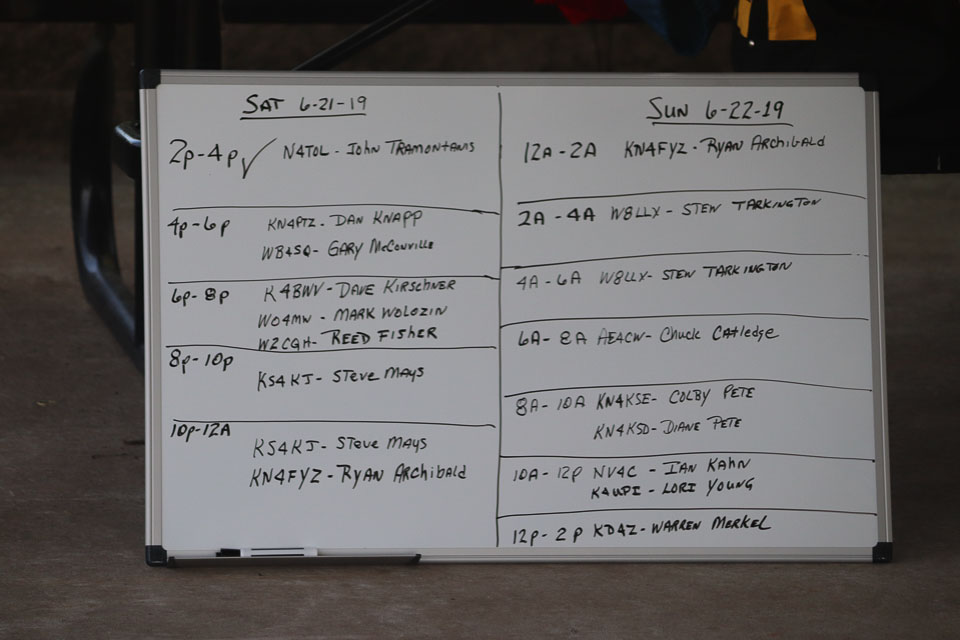 SAT 6-21-19
2p-4p ✓ N4TOL - John TRAMONTANIS
4p-6p KN4PTZ - DAN KNAPP
WB4SQ - GARY McConville
6p-8p K4BWV - DAVE KIRSCHNER
WO4MW - MARK WOLOZIN
W2CQH - REED FISHER
8p-10p KS4KJ - STEVE MAYS
10p-12A
KS4KJ - STEVE MAYS
KN4FYZ - RYAN ARCHIBALD
SUN 6-22-19
12A - 2A KN4FYZ - RYAN ARCHIBALD
2A - 4A W8LLX - STEW TARKINGTON
4A - 6A W8LLX - STEW TARKINGTON
6A - 8A AE4CW - Chuck CATledge
8A - 10A KN4KSE - COLBY PETE
KN4KSD - DIANE PETE
10A - 12p NV4C - IAN KAHN
K4UPI - LORI YOUNG
12p - 2p KD4Z - WARREN MERKEL